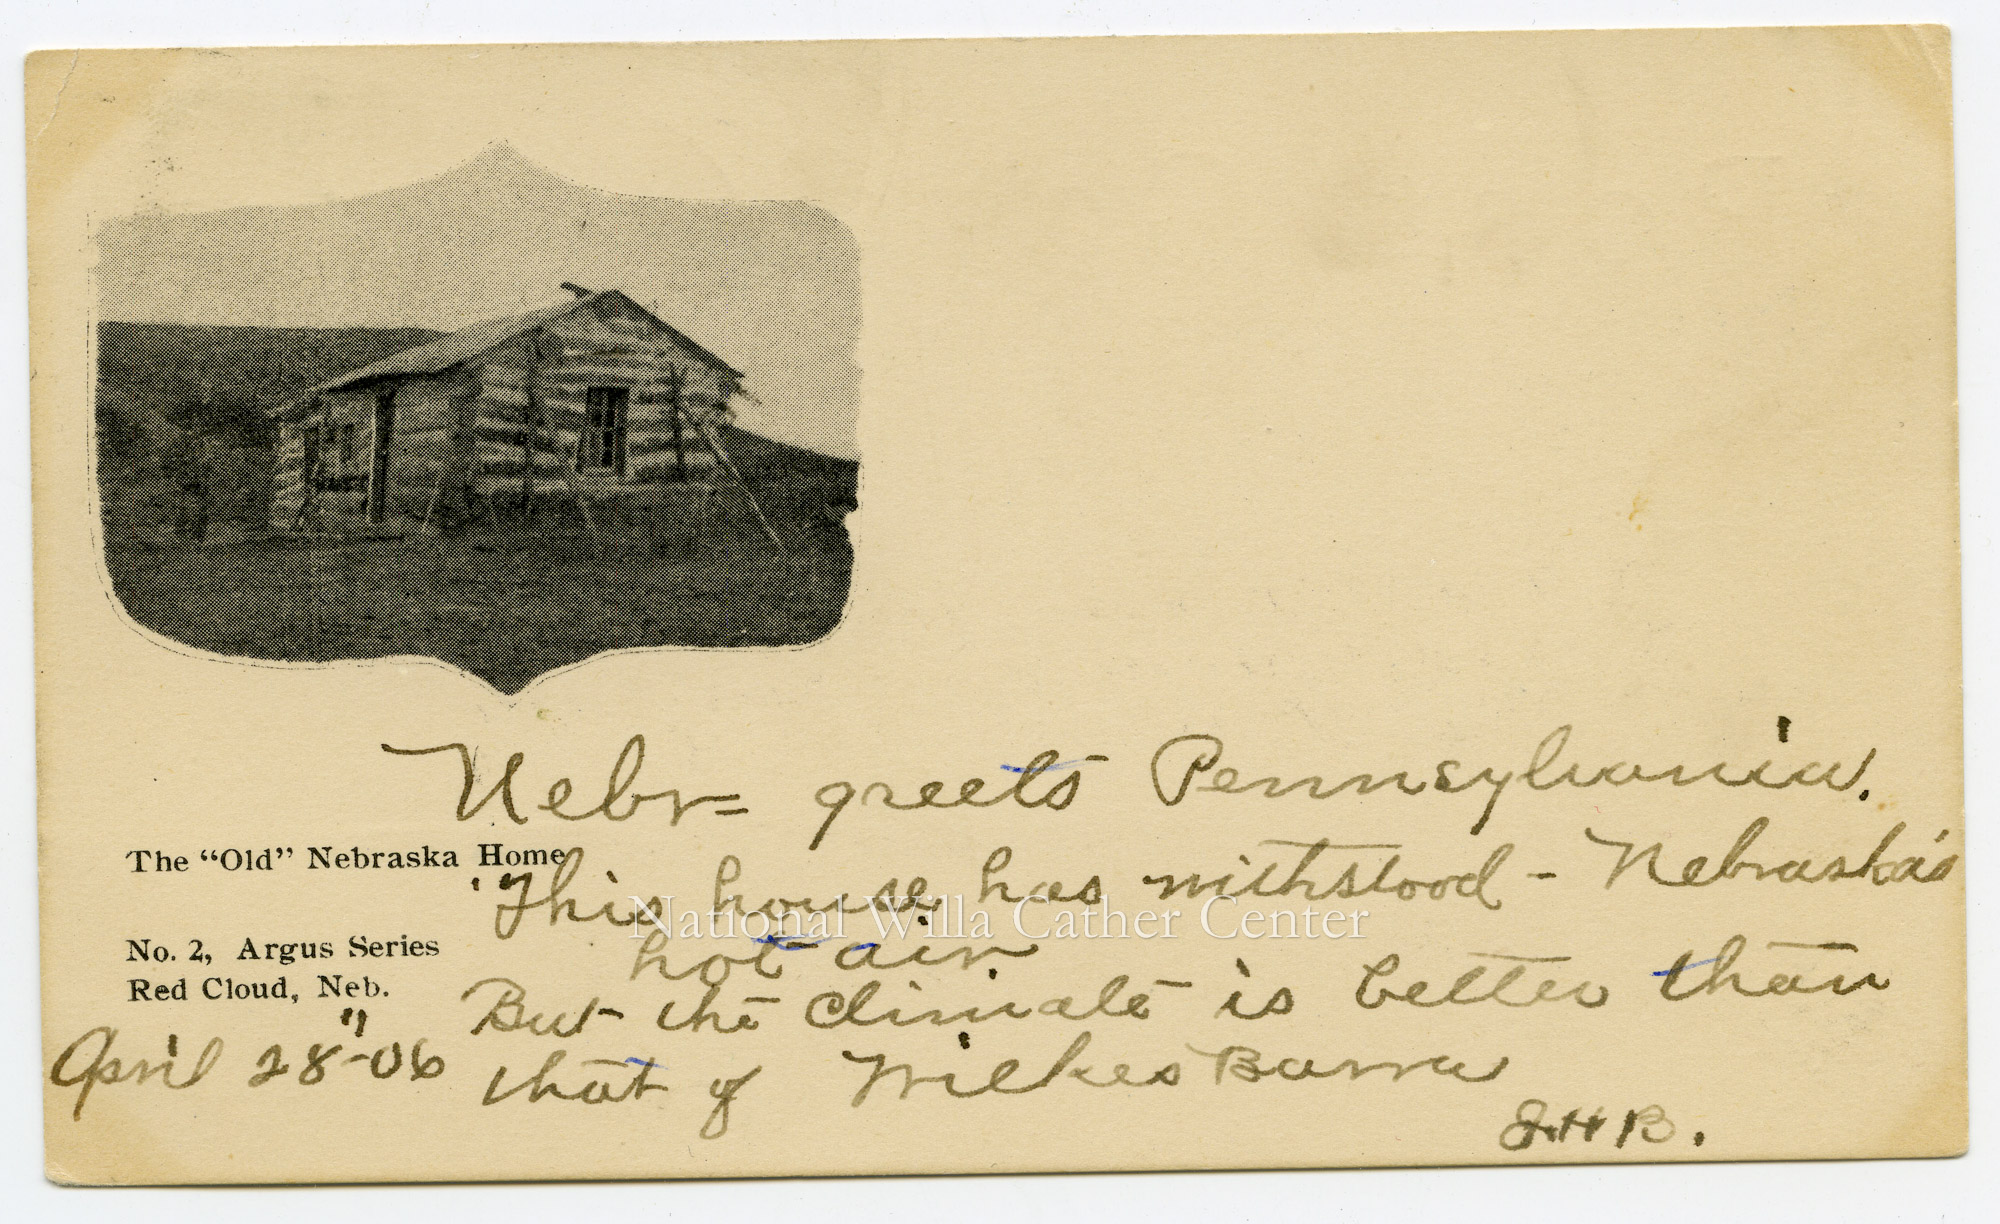 Nebr= greets Pennsylvania.
The "Old" Nebraska Home
This house has withstood - Nebraska's
National Willa Cather Center
hot air.
No. 2, Argus Series
Red Cloud, Neb.
But the climate is better than
April 28"-06
that of Wilkes Barra
H B.